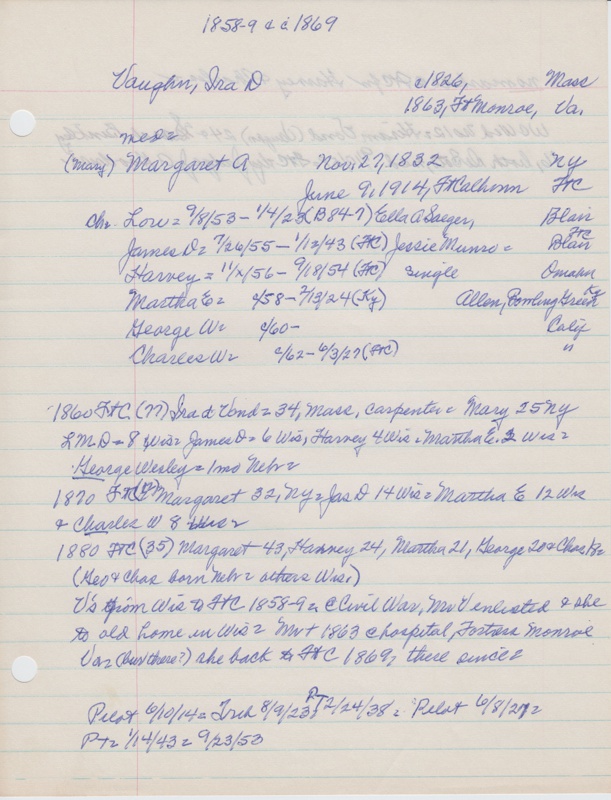 1858-9 & c 1869
Vaughn, Ira D c1826, Mass
1863, Ft Monroe, Va.
(Mary) Margaret A Nov, 27, 1832 NY
June 9, 1914, Ft Calhoun FtC
Ch: Low = 9/8/53 - 1/4/23 (B847) Ella A Saeger, Blair
James D = 7/26/55 - 1/12/43 (FtC) Jessie Munro = Blair FtC
Harvey = 11/2/56 - 9/18/54 (FtC) single Omaha
Martha E = c/58 - 2/13/24 (Ky) Allen, Bowling Green Ky
George W = c/60 - Calif
Charles W = c/62 - 6/3/27 (FtC) "
1860 FtC (77) Ira d = 34, Mass, carpenter = Mary 25 NY
L M D = 8 Wis = James D = 6 Wis, Harvey 4 Wis = Martha E. 2 Wis =
George Wesley = 1mo Nebr =
1870 FtC (17) Margaret 32, NY = Jas D 14 Wis = Martha E 12 Wis
& Charles W 8 =
1880 FtC (35) Margaret 43, 24, Martha 21, George 20 & Chas
(Geo & Chas born Nebr = others Wis.)
V's from Wis to FtC 1858-9 = c Civil War, Mr V enlisted & she
to old home in Wis = Mr + 1863 c hospital, Fortress Monroe
Va = (bur there?) she back to FtC 1869, there since =
Pilot 6/10/14 = Trib 8/9/23, PT 2/24/38 = Pilot 6/8/27 =
PT = 1/14/43 = 9/23/53